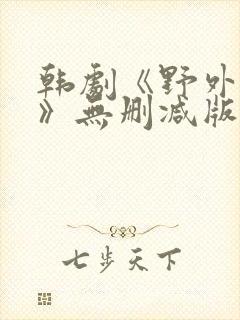 韩劇《野外
》無删减版
七步天下